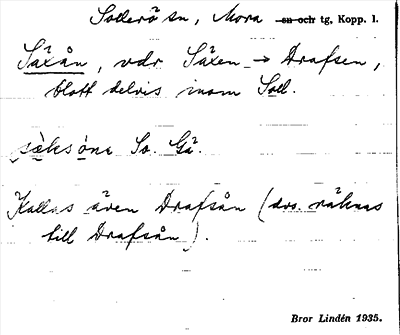 Sollerö sn, Mora sn och tg, Kopp. l.
Säxån, vdr Säxen → Drafsen,
blott delvis inom Soll.
sèksóna So. Gä.
Kallas även Drafsån (dvs. räknas
till Drafsån).
Bror Lindén 1935.